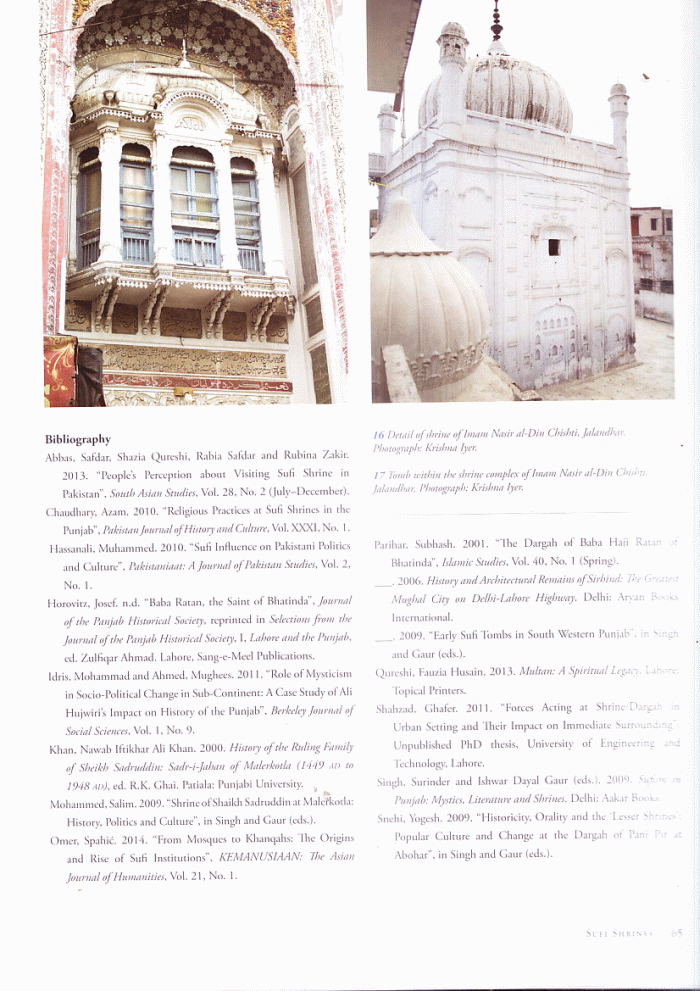 Bibliography
Abbas, Safdar, Shazia Qureshi, Rabia Safdar and Rubina Zakir.
2013. “People’s Perception about Visiting Sufi Shrine in
Pakistan”, South Asian Studies, Vol. 28, No. 2 (July–December).
Chaudhary, Azam. 2010. “Religious Practices at Sufi Shrines in the
Punjab”, Pakistan Journal of History and Culture, Vol. XXXI, No. 1.
Hassanali, Muhammed. 2010. “Sufi Influence on Pakistani Politics
and Culture”, Pakistaniaat: A Journal of Pakistan Studies, Vol. 2,
No. 1.
Horovitz, Josef. n.d. “Baba Ratan, the Saint of Bhatinda”, Journal
of the Panjab Historical Society, reprinted in Selections from the
Journal of the Panjab Historical Society, I, Lahore and the Punjab,
ed. Zulfiqar Ahmad. Lahore, Sang-e-Meel Publications.
Idris, Mohammad and Ahmed, Mughees. 2011. “Role of Mysticism
in Socio-Political Change in Sub-Continent: A Case Study of Ali
Hujwiri’s Impact on History of the Punjab”, Berkeley Journal of
Social Sciences, Vol. 1, No. 9.
Khan, Nawab Iftikhar Ali Khan. 2000. History of the Ruling Family
of Sheikh Sadruddin: Sadr-i-Jahan of Malerkotla (1449 AD to
1948 AD), ed. R.K. Ghai. Patiala: Punjabi University.
Mohammed, Salim. 2009. “Shrine of Shaikh Sadruddin at Malerkotla:
History, Politics and Culture”, in Singh and Gaur (eds.).
Omer, Spahić. 2014. “From Mosques to Khanqahs: The Origins
and Rise of Sufi Institutions”, KEMANUSIAAN: The Asian
Journal of Humanities, Vol. 21, No. 1.
16 Detail of shrine of Imam Nasir al-Din Chishti, Jalandhar.
Photograph: Krishna Iyer.
17 Tomb within the shrine complex of Imam Nasir al-Din Chishti,
Jalandhar. Photograph: Krishna Iyer.
Parihar, Subhash. 2001. “The Dargah of Baba Haji Ratan of
Bhatinda”, Islamic Studies, Vol. 40, No. 1 (Spring).
___. 2006. History and Architectural Remains of Sirhind: The Greatest
Mughal City on Delhi-Lahore Highway. Delhi: Aryan Books
International.
___. 2009. “Early Sufi Tombs in South Western Punjab”, in Singh
and Gaur (eds.).
Qureshi, Fauzia Husain. 2013. Multan: A Spiritual Legacy. Lahore:
Topical Printers.
Shahzad, Ghafer. 2011. “Forces Acting at Shrine/Dargah in
Urban Setting and Their Impact on Immediate Surrounding”.
Unpublished PhD thesis, University of Engineering and
Technology, Lahore.
Singh, Surinder and Ishwar Dayal Gaur (eds.). 2009. Sufism in
Punjab: Mystics, Literature and Shrines. Delhi: Aakar Books.
Snehi, Yogesh. 2009. “Historicity, Orality and the ‘Lesser Shrines’:
Popular Culture and Change at the Dargah of Panj Pir at
Abohar”, in Singh and Gaur (eds.).
SUFI SHRINES 65